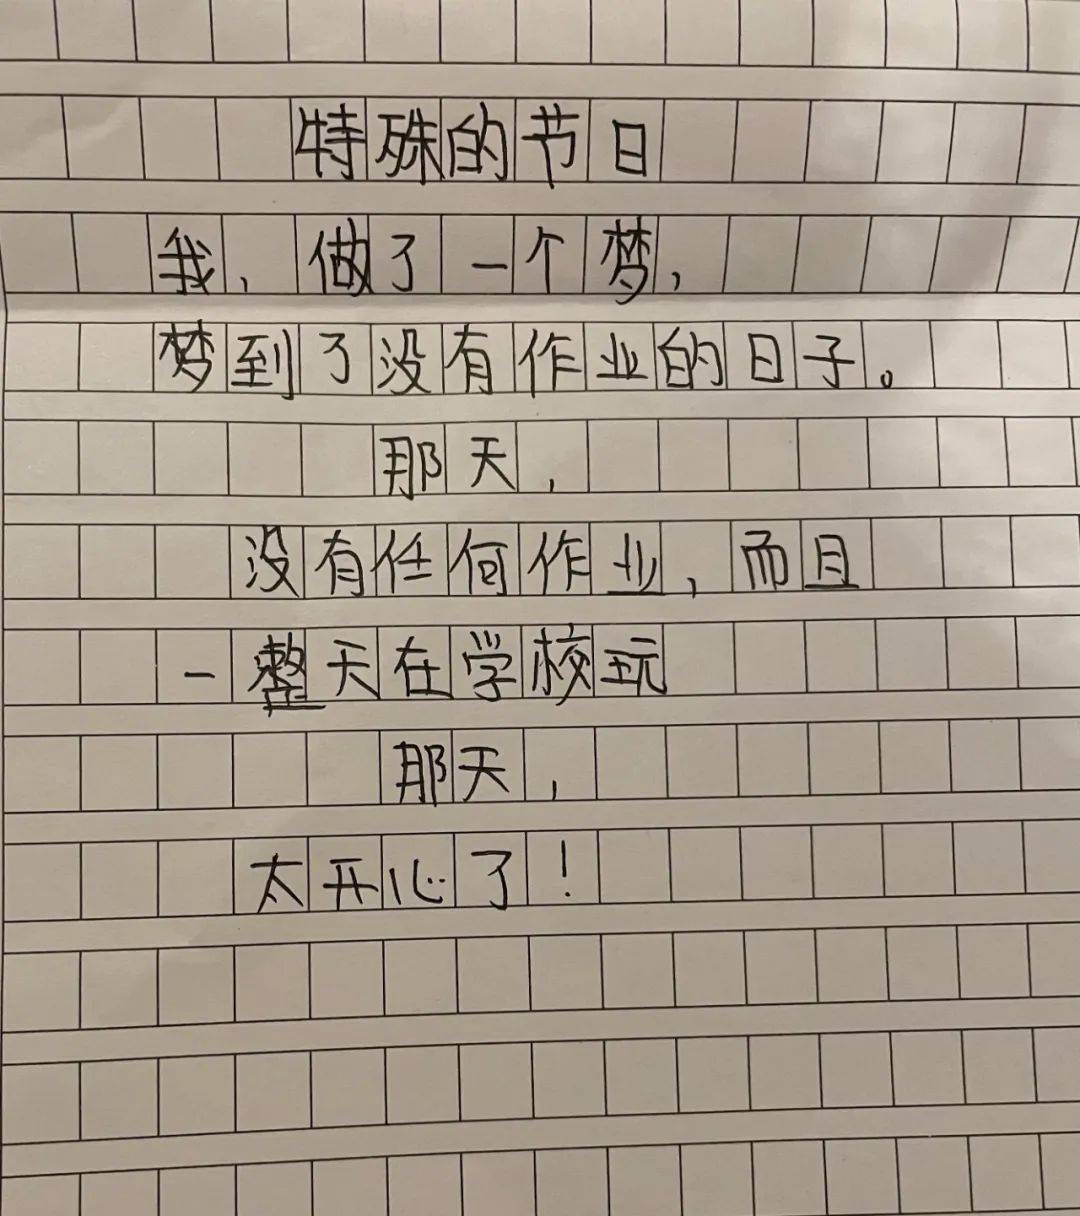 特殊的节日
我，做了一个梦，
梦到了没有作业的日子。
那天，
没有任何作业，而且
一整天在学校玩
那天，
太开心了！